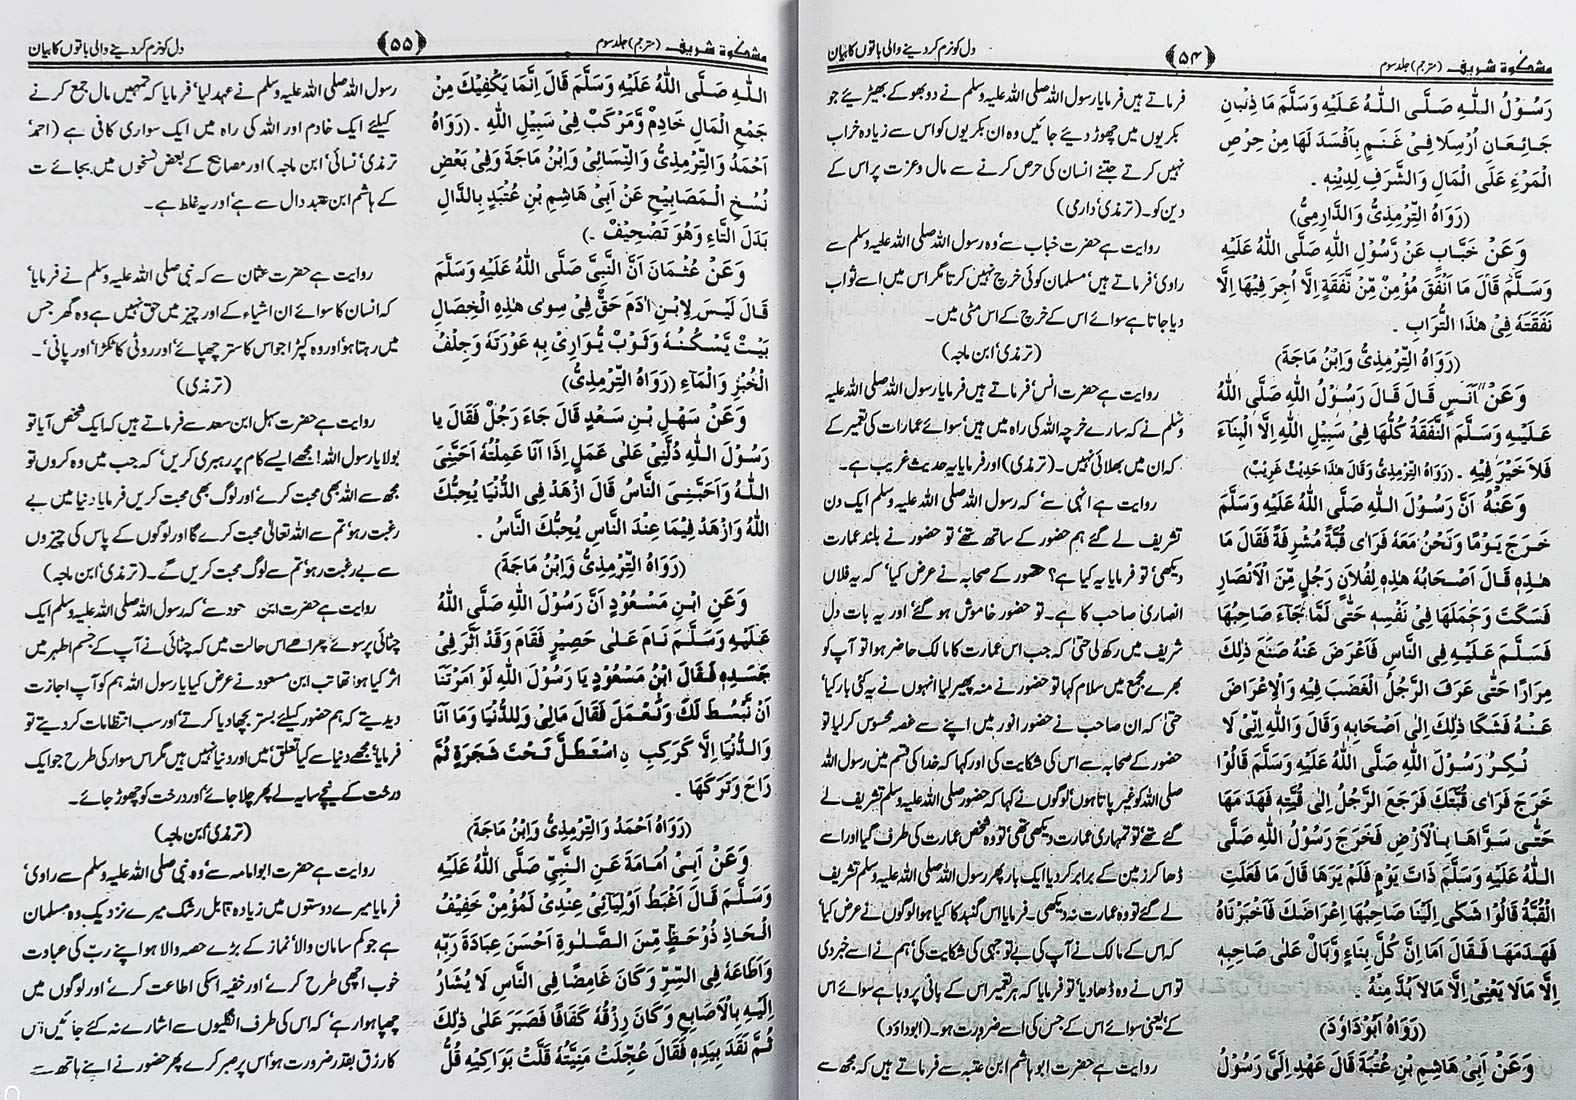 مشکوٰة شریف (مترجم) جلد سوم
﴿۵۴﴾
دل کو نرم کر دینے والی باتوں کا بیان
رَسُوْلُ اللّٰهِ صَلَّى اللّٰهُ عَلَيْهِ وَسَلَّمَ مَا ذِئْبَانِ
جَائِعَانِ اُرْسِلَا فِيْ غَنَمٍ بِاَفْسَدَ لَهَا مِنْ حِرْصِ
الْمَرْءِ عَلَى الْمَالِ وَالشَّرَفِ لِدِيْنِهٖ .
(رَوَاهُ التِّرْمِذِيُّ وَالدَّارِمِيُّ)
وَعَنْ خَبَّابٍ عَنْ رَّسُوْلِ اللّٰهِ صَلَّى اللّٰهُ عَلَيْهِ
وَسَلَّمَ قَالَ مَا اَنْفَقَ مُؤْمِنٌ مِّنْ نَّفَقَةٍ اِلَّا اُجِرَ فِيْهَا اِلَّا
نَفَقَتَهٗ فِيْ هٰذَا التُّرَابِ .
(رَوَاهُ التِّرْمِذِيُّ وَابْنُ مَاجَةَ)
وَعَنْ اَنَسٍ قَالَ قَالَ رَسُوْلُ اللّٰهِ صَلَّى اللّٰهُ
عَلَيْهِ وَسَلَّمَ النَّفَقَةُ كُلُّهَا فِيْ سَبِيْلِ اللّٰهِ اِلَّا الْبِنَآءَ
فَلَا خَيْرَ فِيْهِ . (رَوَاهُ التِّرْمِذِيُّ وَقَالَ هٰذَا حَدِيْثٌ غَرِيْبٌ)
وَعَنْهُ اَنَّ رَسُوْلَ اللّٰهِ صَلَّى اللّٰهُ عَلَيْهِ وَسَلَّمَ
خَرَجَ يَوْمًا وَنَحْنُ مَعَهٗ فَرَاٰى قُبَّةً مُشْرِفَةً فَقَالَ مَا
هٰذِهٖ قَالَ اَصْحَابُهٗ هٰذِهٖ لِفُلَانٍ رَجُلٍ مِّنَ الْاَنْصَارِ
فَسَكَتَ وَحَمَلَهَا فِيْ نَفْسِهٖ حَتّٰى لَمَّا جَآءَ صَاحِبُهَا
فَسَلَّمَ عَلَيْهِ فِى النَّاسِ فَاَعْرَضَ عَنْهُ صَنَعَ ذٰلِكَ
مِرَارًا حَتّٰى عَرَفَ الرَّجُلُ الْغَضَبَ فِيْهِ وَالْاِعْرَاضَ
عَنْهُ فَشَكَا ذٰلِكَ اِلٰى اَصْحَابِهٖ وَقَالَ وَاللّٰهِ اِنِّيْ لَا
نُكِرُ رَسُوْلَ اللّٰهِ صَلَّى اللّٰهُ عَلَيْهِ وَسَلَّمَ قَالُوْا
خَرَجَ فَرَاٰى قُبَّتَكَ فَرَجَعَ الرَّجُلُ اِلٰى قُبَّتِهٖ فَهَدَمَهَا
حَتّٰى سَوَّاهَا بِالْاَرْضِ فَخَرَجَ رَسُوْلُ اللّٰهِ صَلَّى
اللّٰهُ عَلَيْهِ وَسَلَّمَ ذَاتَ يَوْمٍ فَلَمْ يَرَهَا قَالَ مَا فَعَلَتِ
الْقُبَّةُ قَالُوْا شَكٰى اِلَيْنَا صَاحِبُهَا اِعْرَاضَكَ فَاَخْبَرْنَاهُ
فَهَدَمَهَا فَقَالَ اَمَا اِنَّ كُلَّ بِنَاءٍ وَّبَالٌ عَلٰى صَاحِبِهٖ
اِلَّا مَالَا يَعْنِيْ اِلَّا مَالَا بُدَّ مِنْهُ .
(رَوَاهُ اَبُوْدَاوٗدَ)
وَعَنْ اَبِيْ هَاشِمِ بْنِ عُتْبَةَ قَالَ عَهِدَ اِلَيَّ رَسُوْلُ
فرماتے ہیں فرمایا رسول اللہ صلی اللہ علیہ وسلم نے دو بھوکے بھیڑیئے جو
بکریوں میں چھوڑ دیئے جائیں وہ ان بکریوں کو اس سے زیادہ خراب
نہیں کرتے جتنے انسان کی حرص کرنے سے مال وعزت پر اس کے
دین کو۔ (ترمذی، دارمی)
روایت ہے حضرت خباب سے، وہ رسول اللہ صلی اللہ علیہ وسلم سے
راوی، فرماتے ہیں، مسلمان کوئی خرچ نہیں کرتا مگر اس میں اسے ثواب
دیا جاتا ہے سوائے اس کے خرچ کے اس مٹی میں۔
(ترمذی، ابن ماجہ)
روایت ہے حضرت انس، فرماتے ہیں فرمایا رسول اللہ صلی اللہ علیہ
وسلم نے کہ سارے خرچہ اللہ کی راہ میں ہیں، سوائے عمارات کی تعمیر کے
کہ ان میں بھلائی نہیں۔ (ترمذی) اور فرمایا یہ حدیث غریب ہے۔
روایت ہے انہی سے، کہ رسول اللہ صلی اللہ علیہ وسلم ایک دن
تشریف لے گئے ہم حضور کے ساتھ تھے، تو حضور نے بلند عمارت
دیکھی، تو فرمایا یہ کیا ہے؟ حضور کے صحابہ نے عرض کیا، کہ یہ فلاں
انصاری صاحب کا ہے۔ تو حضور خاموش ہو گئے، اور یہ بات دل
شریف میں رکھ لی حتیٰ کہ جب اس عمارت کا مالک حاضر ہوا تو آپ کو
بھرے مجمع میں سلام کہا تو حضور نے منہ پھیر لیا انہوں نے یہ کئی بار کیا،
حتیٰ کہ ان صاحب نے حضور انور میں اپنے سے غصہ محسوس کر لیا تو
حضور کے صحابہ سے اس کی شکایت کی اور کہا کہ خدا کی قسم میں رسول اللہ
صلی اللہ کو غیر پاتا ہوں، لوگوں نے کہا کہ حضور صلی اللہ علیہ وسلم تشریف لے
گئے تھے، تو تمہاری عمارت دیکھی تھی، تو وہ شخص عمارت کی طرف گیا اور اسے
ڈھا کر زمین کے برابر کر دیا ایک بار پھر رسول اللہ صلی اللہ علیہ وسلم تشریف
لے گئے تو وہ عمارت نہ دیکھی۔ فرمایا اس گنبد کا کیا ہوا لوگوں نے عرض کیا،
کہ اس کے مالک نے آپ کی بے توجہی کی شکایت کی، ہم نے اسے خبر دی
تو اس نے وہ ڈھا دیا، تو فرمایا کہ ہر تعمیر اس کے بانی پر وبا ہے سوائے اس
کے، یعنی سوائے اس کے جس کی اسے ضرورت ہو۔ (ابوداؤد)
روایت ہے حضرت ابو ہاشم ابن عتبہ سے فرماتے ہیں کہ مجھ سے
مشکوٰة شریف (مترجم) جلد سوم
﴿۵۵﴾
دل کو نرم کر دینے والی باتوں کا بیان
اللّٰهِ صَلَّى اللّٰهُ عَلَيْهِ وَسَلَّمَ قَالَ اِنَّمَا يَكْفِيْكَ مِنْ
جَمْعِ الْمَالِ خَادِمٌ وَّمَرْكَبٌ فِيْ سَبِيْلِ اللّٰهِ . (رَوَاهُ
اَحْمَدُ وَالتِّرْمِذِيُّ وَالنِّسَائِيُّ وَابْنُ مَاجَةَ وَفِيْ بَعْضِ
نُسْخِ الْمَصَابِيْحِ عَنْ اَبِيْ هَاشِمِ بْنِ عُتْبَدٍ بِالدَّالِ
بَدَلَ التَّاءِ وَهُوَ تَصْحِيْفٌ .)
وَعَنْ عُثْمَانَ اَنَّ النَّبِيَّ صَلَّى اللّٰهُ عَلَيْهِ وَسَلَّمَ
قَالَ لَيْسَ لِابْنِ اٰدَمَ حَقٌّ فِيْ سِوٰى هٰذِهِ الْخِصَالِ
بَيْتٌ يَسْكُنُهٗ وَثَوْبٌ يُّوَارِيْ بِهٖ عَوْرَتَهٗ وَجِلْفُ
الْخُبْزِ وَالْمَاءِ (رَوَاهُ التِّرْمِذِيُّ)
وَعَنْ سَهْلِ بْنِ سَعْدٍ قَالَ جَاءَ رَجُلٌ فَقَالَ يَا
رَسُوْلَ اللّٰهِ دُلَّنِيْ عَلٰى عَمَلٍ اِذَا اَنَا عَمِلْتُهٗ اَحَبَّنِيَ
اللّٰهُ وَاَحَبَّنِيَ النَّاسُ قَالَ ازْهَدْ فِى الدُّنْيَا يُحِبُّكَ
اللّٰهُ وَازْهَدْ فِيْمَا عِنْدَ النَّاسِ يُحِبُّكَ النَّاسُ .
(رَوَاهُ التِّرْمِذِيُّ وَابْنُ مَاجَةَ)
وَعَنِ ابْنِ مَسْعُوْدٍ اَنَّ رَسُوْلَ اللّٰهِ صَلَّى اللّٰهُ
عَلَيْهِ وَسَلَّمَ نَامَ عَلٰى حَصِيْرٍ فَقَامَ وَقَدْ اَثَّرَ فِيْ
جَسَدِهٖ فَقَالَ ابْنُ مَسْعُوْدٍ يَا رَسُوْلَ اللّٰهِ لَوْ اَمَرْتَنَا
اَنْ نَّبْسُطَ لَكَ وَنَعْمَلَ فَقَالَ مَالِيْ وَلِلدُّنْيَا وَمَا اَنَا
وَالدُّنْيَا اِلَّا كَرَاكِبٍ نِ اسْتَظَلَّ تَحْتَ شَجَرَةٍ ثُمَّ
رَاحَ وَتَرَكَهَا .
(رَوَاهُ اَحْمَدُ وَالتِّرْمِذِيُّ وَابْنُ مَاجَةَ)
وَعَنْ اَبِيْ اُمَامَةَ عَنِ النَّبِيِّ صَلَّى اللّٰهُ عَلَيْهِ
وَسَلَّمَ قَالَ اَغْبَطُ اَوْلِيَائِيْ عِنْدِيْ لَمُؤْمِنٌ خَفِيْفُ
الْحَاذِ ذُوْحَظٍّ مِّنَ الصَّلٰوةِ اَحْسَنَ عِبَادَةَ رَبِّهٖ
وَاَطَاعَهٗ فِى السِّرِّ وَكَانَ غَامِضًا فِى النَّاسِ لَا يُشَارُ
اِلَيْهِ بِالْاَصَابِعِ وَكَانَ رِزْقُهٗ كَفَافًا فَصَبَرَ عَلٰى ذٰلِكَ
ثُمَّ نَقَدَ بِيَدِهٖ فَقَالَ عُجِّلَتْ مَنِيَّتُهٗ قَلَّتْ بَوَاكِيْهِ قُلُّ
رسول اللہ صلی اللہ علیہ وسلم نے عہد لیا، فرمایا کہ تمہیں مال جمع کرنے
کیلئے ایک خادم اور اللہ کی راہ میں ایک سواری کافی ہے (احمد،
ترمذی، نسائی، ابن ماجہ) اور مصابیح کے بعض نسخوں میں بجائے ت
کے ہاشم ابن عتبد دال سے ہے، اور یہ غلط ہے۔
روایت ہے حضرت عثمان سے کہ نبی صلی اللہ علیہ وسلم نے فرمایا،
کہ انسان کا سوائے ان اشیاء کے اور چیز میں حق نہیں ہے وہ گھر جس
میں رہتا ہو، اور وہ کپڑا جو اس کا ستر چھپائے، اور روٹی کا ٹکڑا، اور پانی، ۔
(ترمذی)
روایت ہے حضرت سہل ابن سعد سے فرماتے ہیں کہ ایک شخص آیا تو
بولا یا رسول اللہ! مجھے ایسے کام پر رہبری کریں، کہ جب میں وہ کروں تو
مجھ سے اللہ بھی محبت کرے، اور لوگ بھی محبت کریں فرمایا دنیا میں بے
رغبت رہو، تم سے اللہ تعالیٰ محبت کرے گا اور لوگوں کے پاس کی چیزوں
سے بے رغبت رہو، تم سے لوگ محبت کریں گے۔ (ترمذی، ابن ماجہ)
روایت ہے حضرت ابن سے، کہ رسول اللہ صلی اللہ علیہ وسلم ایک
چٹائی پر سوئے پھر اٹھے اس حالت میں کہ چٹائی نے آپ کے جسم اطہر میں
اثر کیا ہوا تھا تب ابن مسعود نے عرض کیا یا رسول اللہ ہم کو آپ اجازت
دیدیتے کہ ہم حضور کیلئے بستر بچھا دیا کرتے، اور سب انتظامات کر دیتے تو
فرمایا، مجھے دنیا سے کیا تعلق، میں اور دنیا نہیں ہیں مگر اس سوار کی طرح جو ایک
درخت کے نیچے سایہ لے پھر چلا جائے، اور درخت کو چھوڑ جائے۔
(ترمذی، ابن ماجہ)
روایت ہے حضرت ابو امامہ سے، وہ نبی صلی اللہ علیہ وسلم سے راوی،
فرمایا میرے دوستوں میں زیادہ قابل رشک میرے نزدیک وہ مسلمان
ہے جو کم سامان والا، نماز کے بڑے حصہ والا ہو اپنے ربّ کی عبادت
خوب اچھی طرح کرے، اور خفیہ اسکی اطاعت کرے، اور لوگوں میں
چھپا ہوا رہے، کہ اس کی طرف انگلیوں سے اشارے نہ کئے جائیں اس
کا رزق بقدر ضرورت ہو، اس پر صبر کرے پھر حضور نے اپنے ہاتھ سے